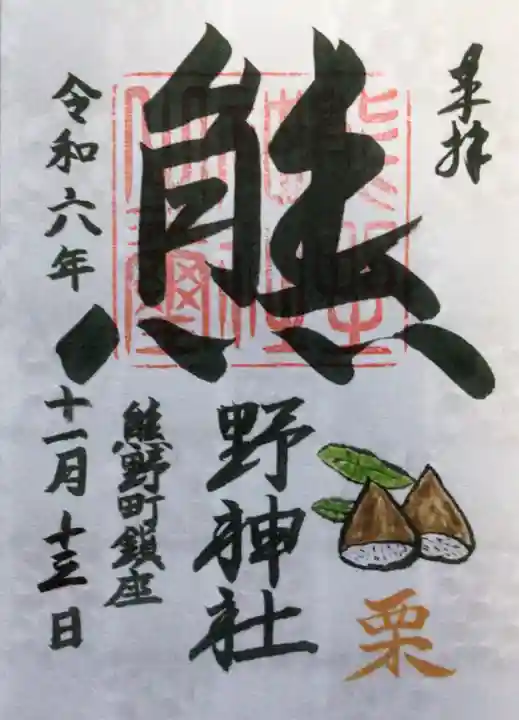 奉拝
熊
野神社
栗
熊野町鎮座
令和六年
十一月十三日